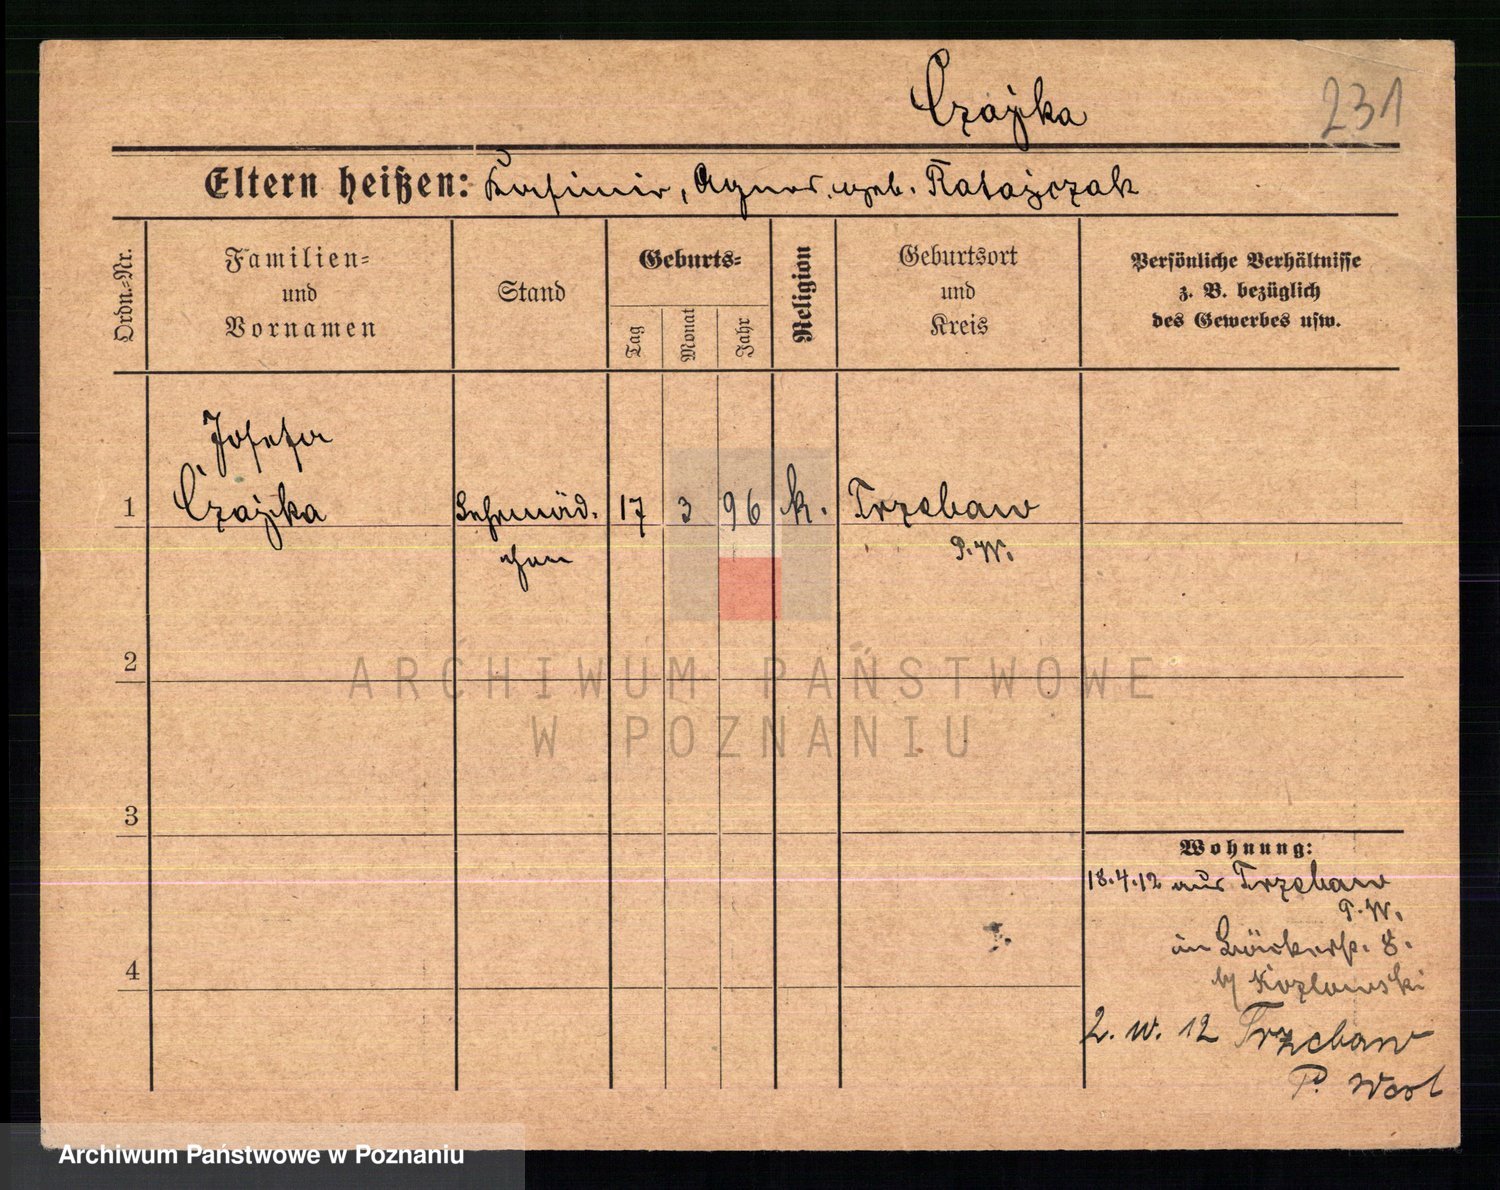 Czajka
231
Eltern heißen: Kasimir, Agnes geb. Ratajczak
Ordn.-Nr.
Familien- und Vornamen
Stand
Geburts-
Tag
Monat
Jahr
Religion
Geburtsort und Kreis
Persönliche Verhältnisse
z. B. bezüglich
des Gewerbes usw.
Josefa
1 Czajka Lehrmäd. 17 3 96 k. Trzebaw
chen P.W.
2
ARCHIWUM PAŃSTWOWE
W POZNANIU
3
Wohnung:
18.4.12 aus Trzebaw
P.W.
in Bäckerst. 8.
4
b/ Kozlowski
2. W. 12 Trzebaw
P. West
Archiwum Państwowe w Poznaniu